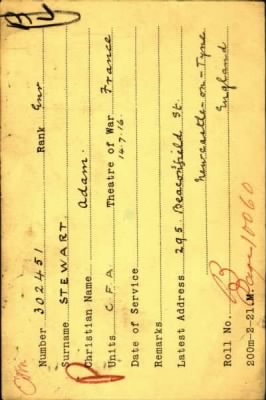 Number 302451 Rank Gnr
Surname STEWART
Christian Name Adam.
Units C.F.A. Theatre of War France
14.7.16.
Date of Service
Remarks
Latest Address 295 Beaconsfield St.
Newcastle-on-Tyne
England
Roll No. B
Page 10060
200m-2-21.M.